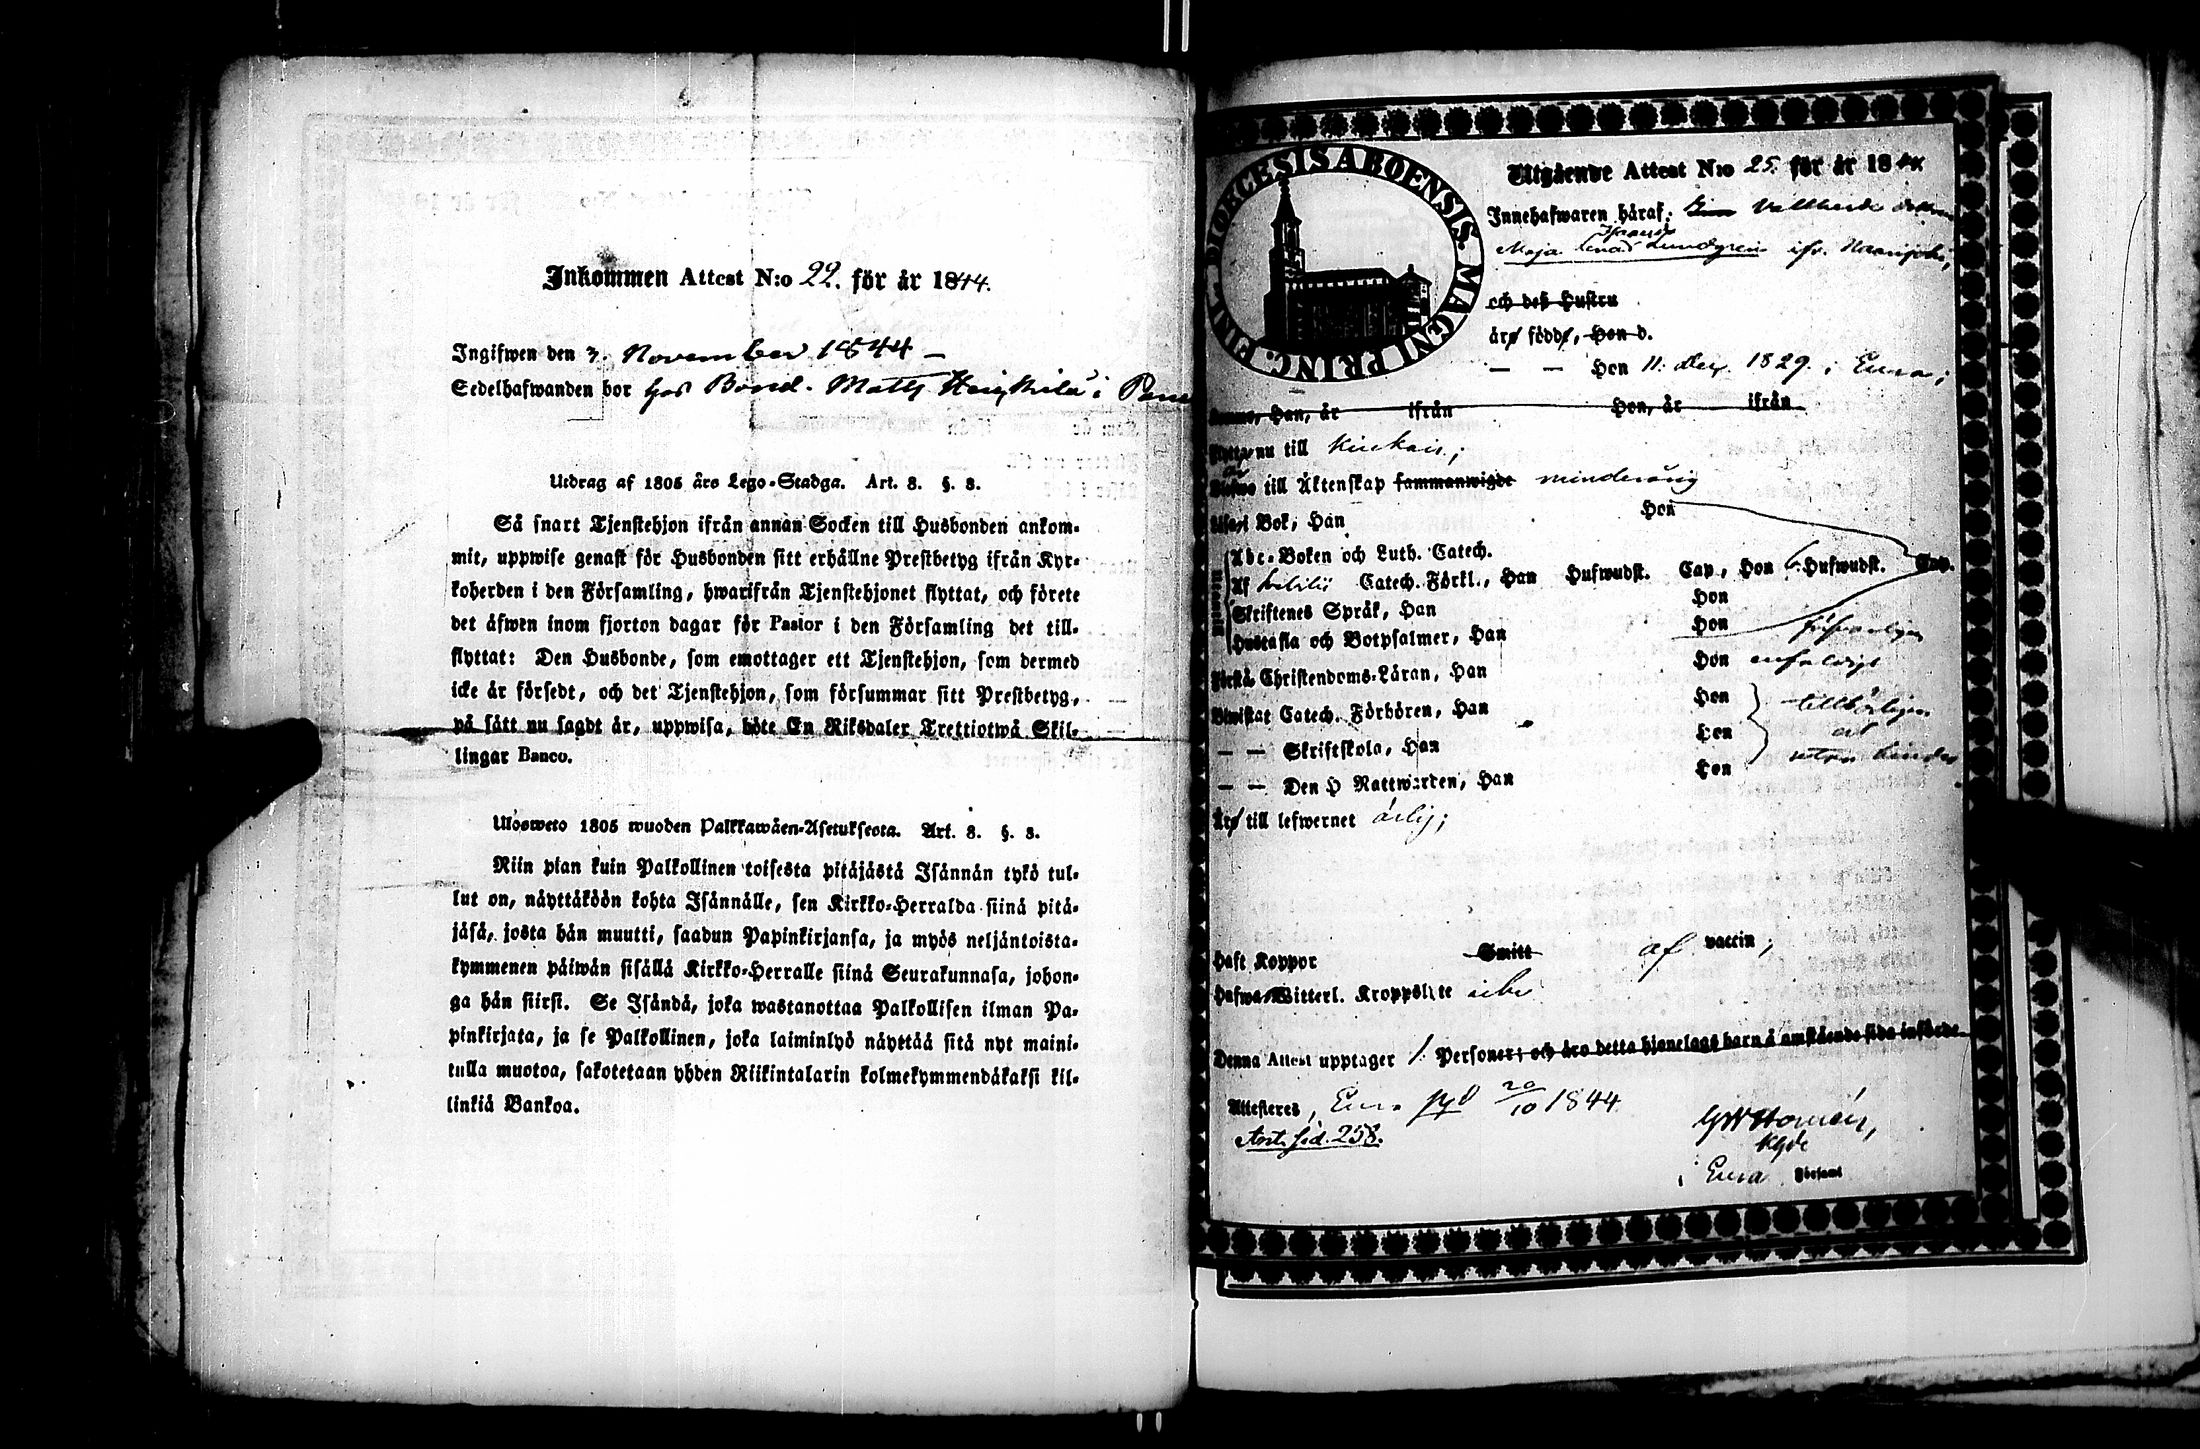 Inkommen Attest N:o 22. för år 1844.
Ingifwen den 3. November 1844 –
Sedelhafwanden bor hos Bond. Matts i
Utdrag af 1805 års Lego-Stadga. Art. 8. §. 8.
Så snart Tjenstehjon ifrån annan Socken till Husbonden ankom-
mit, uppwise genast för Husbonden sitt erhållne Prestbetyg ifrån Kyr-
koherden i den Församling, hwarifrån Tjenstehjonet flyttat, och förete
det äfwen inom fjorton dagar för Pastor i den Församling det till-
flyttat: Den Husbonde, som emottager ett Tjenstehjon, som dermed
icke är försedt, och det Tjenstehjon, som försummar sitt Prestbetyg,
på sätt nu sagdt är, uppwisa, böte En Riksdaler Trettiotwå Skil-
lingar Banco.
Ulosweto 1805 wuoden Palkkawäen-Asetuksesta. Art. 8. §. 8.
Niin pian kuin Palkollinen toisesta pitäjästä Isännän tykö tul-
lut on, näyttäköön kohta Isännälle, sen Kirkko-Herralda siinä pitä-
jäsä, josta hän muutti, saadun Papinkirjansa, ja myös neljäntoista-
kymmenen päiwän sisällä Kirkko-Herralle siinä Seurakunnasa, johon-
ga hän siirst. Se Isändä, joka wastanottaa Palkollisen ilman Pa-
pinkirjata, ja se Palkollinen, joka laiminlyö näyttää sitä nyt maini-
tulla muotoa, sakotetaan yhden Riikintalarin kolmekymmendäkaksi kil-
linkiä Bankoa.
DIOECESIS ABOENSIS. MAGNI PRINC. FINL.
Utgående Attest N:o 25. för år 1844.
Innehafwaren häraf,
Maja Lundgren ifr.
och dess Hustru
äro födde, Hon d.
— — Hon 11. Dec. 1829. i Eura;
Han, är ifrån Hon, är ifrån
nu till Kiukais;
till Äktenskap sammanwigde minderårig
i Bok, Han Hon
Abc-Boken och Luth. Catech.
Af Catech. Förkl., Han Hufwudst. Cap, Hon 6. Hufwudst. Cap.
Skriftenes Språk, Han Hon
Hustafla och Botpsalmer, Han Hon försvarligen
Förstå Christendoms-Läran, Han Hon enfaldigt
Biwistat Catech. Förhören, Han Hon tillbörligen
— — Skriftskola, Han Hon
— — Den H Nattwarden, Han Hon utan hinder
Äro till lefwernet ärlig;
Haft Koppor Smitt af vaccin;
Hafwa Witterl. Kroppslyte icke
Denna Attest upptager 1. Personer; och äro detta hjonelags barn å omstående sida införde
Attesteres, Eura 20/10 1844
Ant. sid. 258.
i Eura Församl